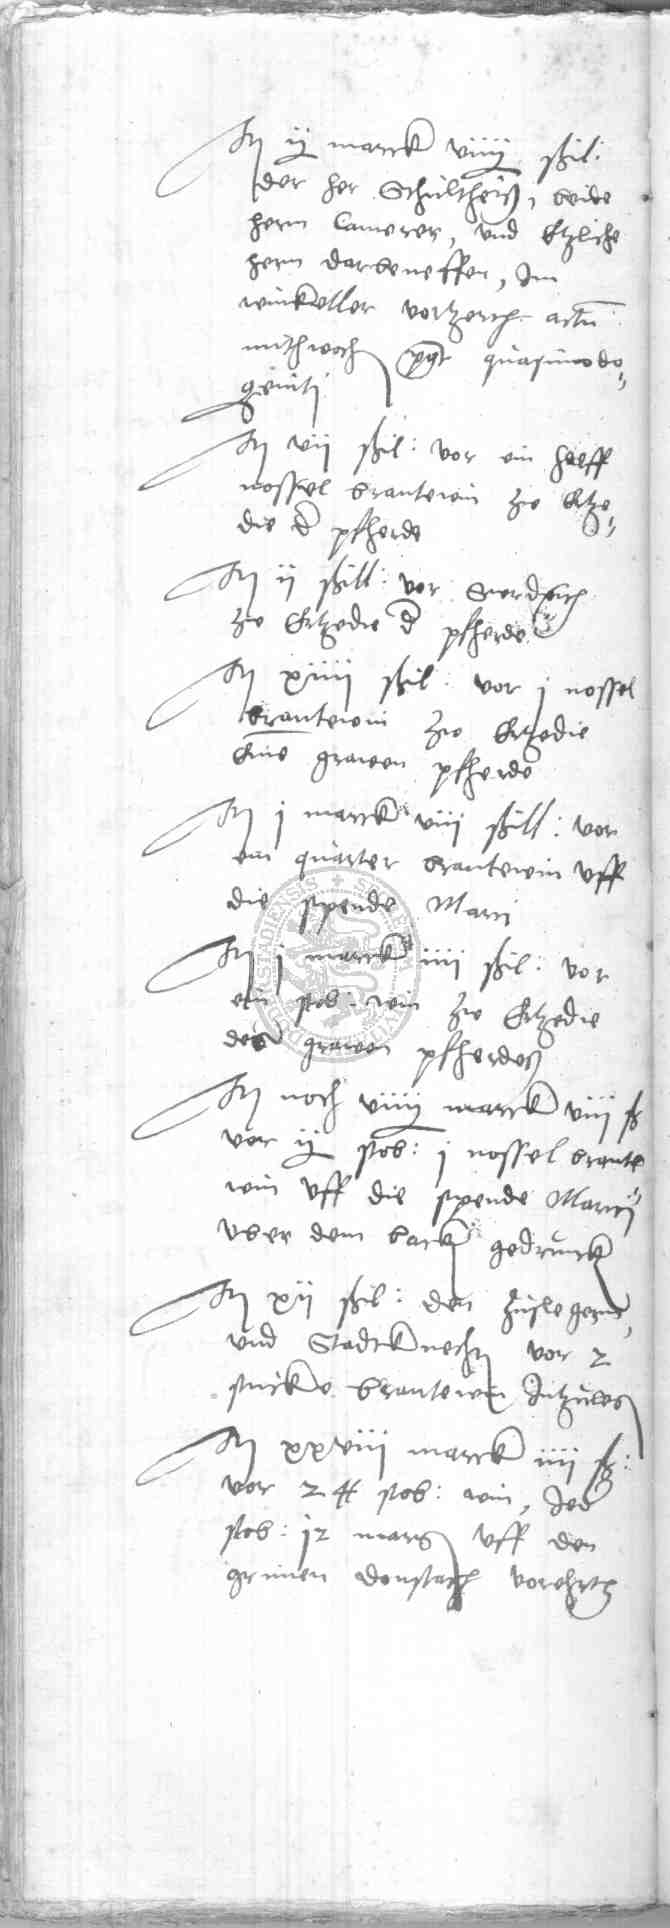 It ij marck viiij ßil:
der her Schultheiß, beide
hern Camerer, und etzliche
hern darbeneffen, Im
winkeller vorzerth actu
mithwoch pt quasimodo„
geniti
It vij ßil: vor ein halff
nossel brantewin zw Ertze„
die d pfherde
It ij ßill: vor
zw Ertzedie d pfherde
It xiiij ßil: vor j nossel
brantewin zw Ertzedie
eins grawen pfherde
It j marck viij ßill: vor
ein quarter brantewin uff
die spende Marci
It j marck iiij ßil: vor
ein stob: win zw Ertzedie
des grawen pfherdes
It noch viiij marck viij ß
vor ij stob: j nossel brante
win uff die spende Marci
uber dem back gedrunck
It xij ßil: den
und Stadtknecht vor 2
stucke brantewin
It xxviij marck iiij ß:
vor 24 stob: win, Jed
stob: 12 uff den
grunen donstach vorehrth